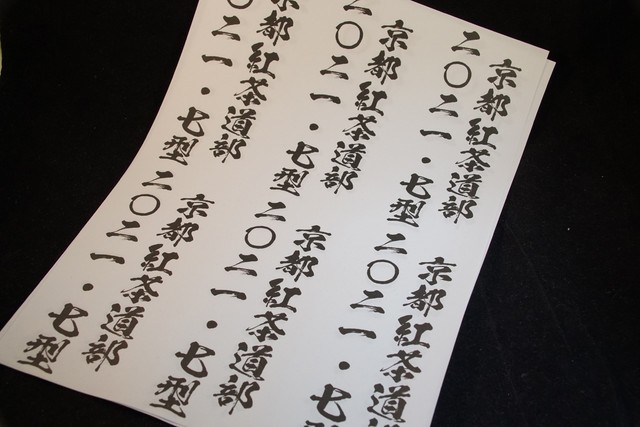 京都紅茶道部
二〇二一・七型
京都紅茶道部
二〇二一・七型
京都紅茶道部
〇二一・七型
京都紅茶道
二〇二一・七
京都紅茶道部
二〇二一・七型
京都紅茶道部
二〇二一・七型